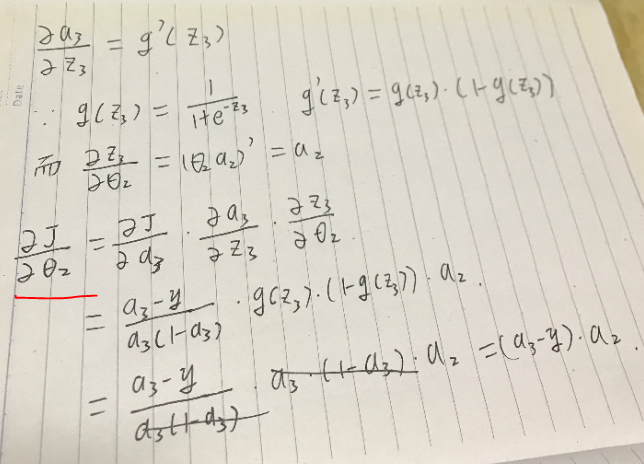 ∂a₃/∂z₃ = g'(z₃)
∵ g(z₃) = 1/(1+e^(-z₃)) g'(z₃) = g(z₃)·(1-g(z₃))
而 ∂z₃/∂θ₂ = (θ₂a₂)' = a₂
∂J/∂θ₂ = ∂J/∂a₃ · ∂a₃/∂z₃ · ∂z₃/∂θ₂
= (a₃-y)/(a₃(1-a₃)) · g(z₃)·(1-g(z₃))·a₂.
= (a₃-y)/(a₃(1-a₃)) · a₃·(1-a₃)·a₂ = (a₃-y)·a₂.
Date